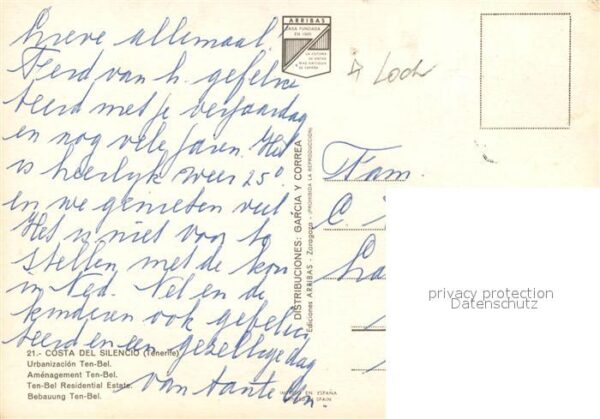 Lieve allemaal,
Ferd van h. gefelici
teerd met je verjaardag
en nog vele jaren. Het
is heerlijk weer 25°
en we genieten veel
Het is niet voor te
stellen met de kou
in Ned. Nel en de
kinderen ook gefelici
teerd en een gezellige dag
van tante
21.- COSTA DEL SILENCIO (Tenerife)
Urbanización Ten-Bel.
Aménagement Ten-Bel.
Ten-Bel Residential Estate.
Bebauung Ten-Bel.
ARRIBAS
CASA FUNDADA
EN
DISTRIBUCIONES: GARCIA Y CORREA
Ediciones ARRIBAS - Zaragoza - (PROHIBIDA LA REPRODUCCION)
ESPAÑA
SPAIN
Loch
Fam.
C.
privacy protection
Datenschutz